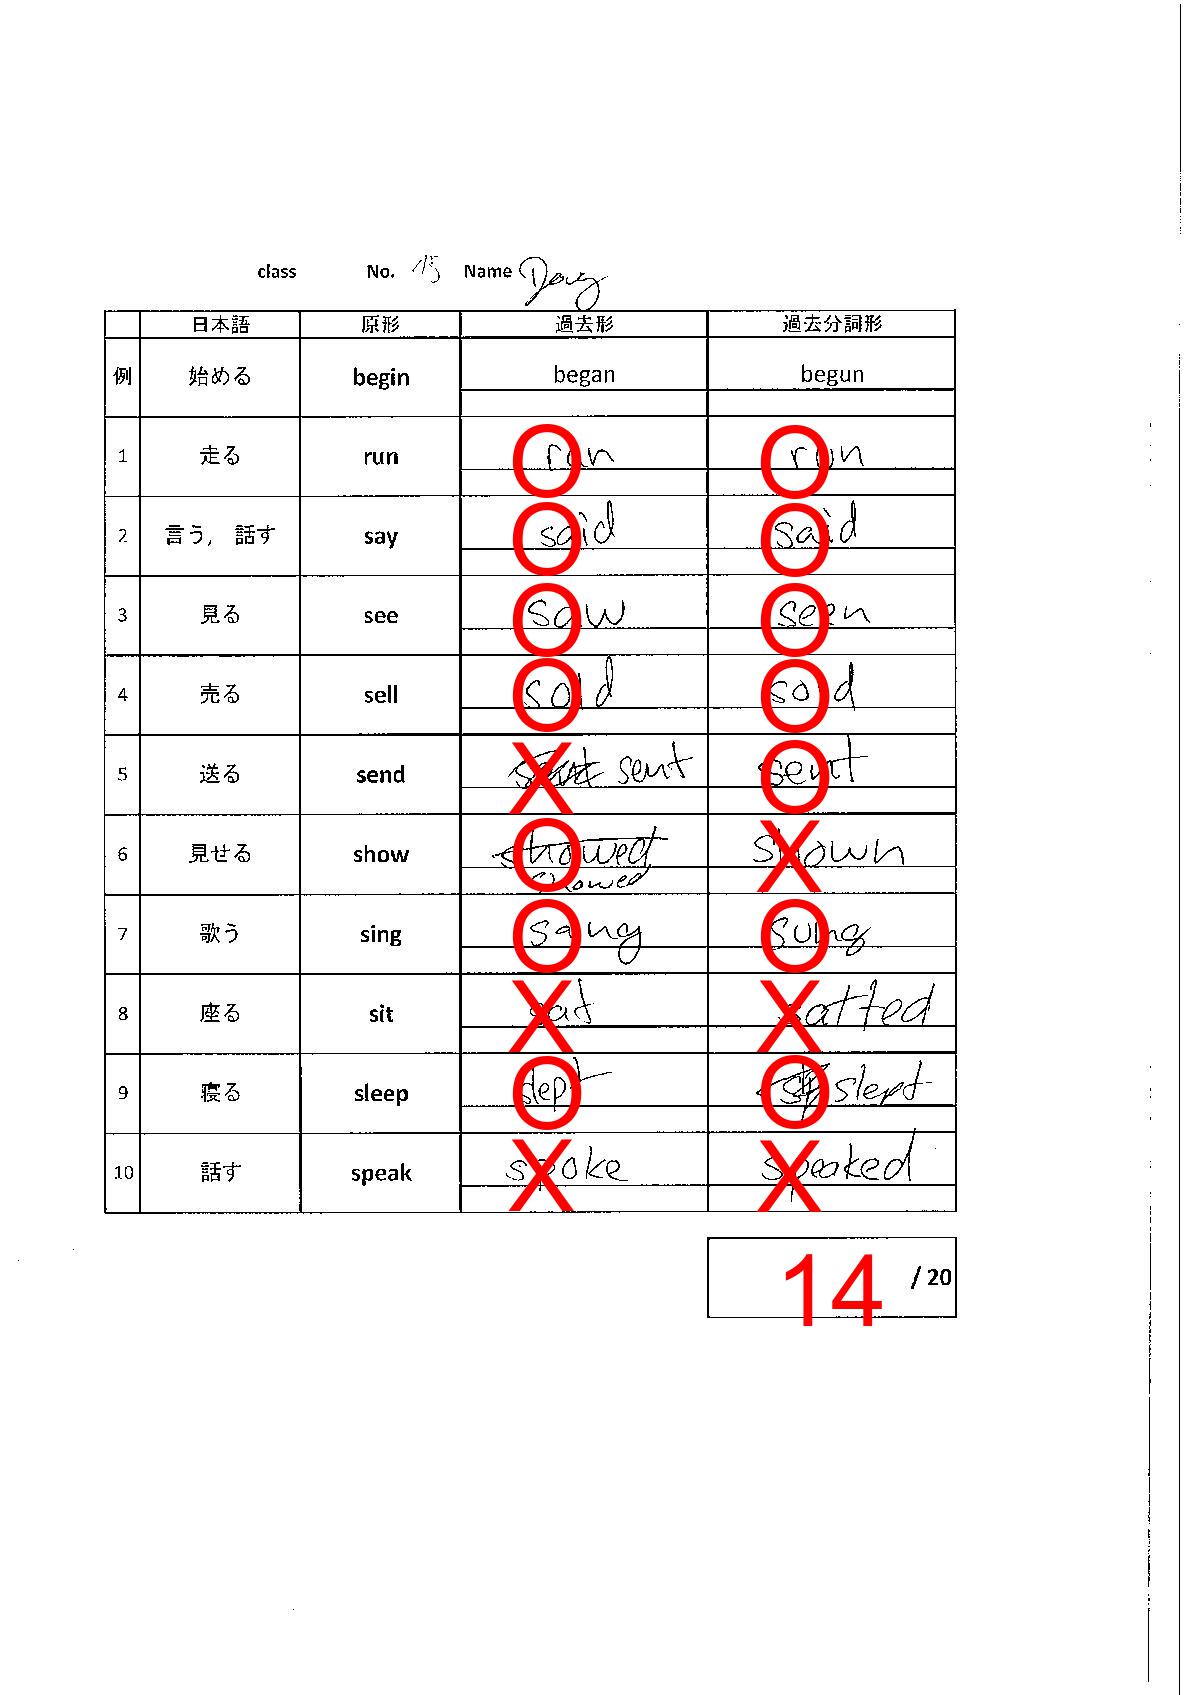 class No. 15 Name Doug
日本語 原形 過去形 過去分詞形
例 始める begin began begun
1 走る run ran run
2 言う, 話す say said said
3 見る see saw seen
4 売る sell sold sold
5 送る send sent sent
6 見せる show showed showed shown
7 歌う sing sang sung
8 座る sit sat satted
9 寝る sleep slept slept
10 話す speak spoke speaked
14 / 20